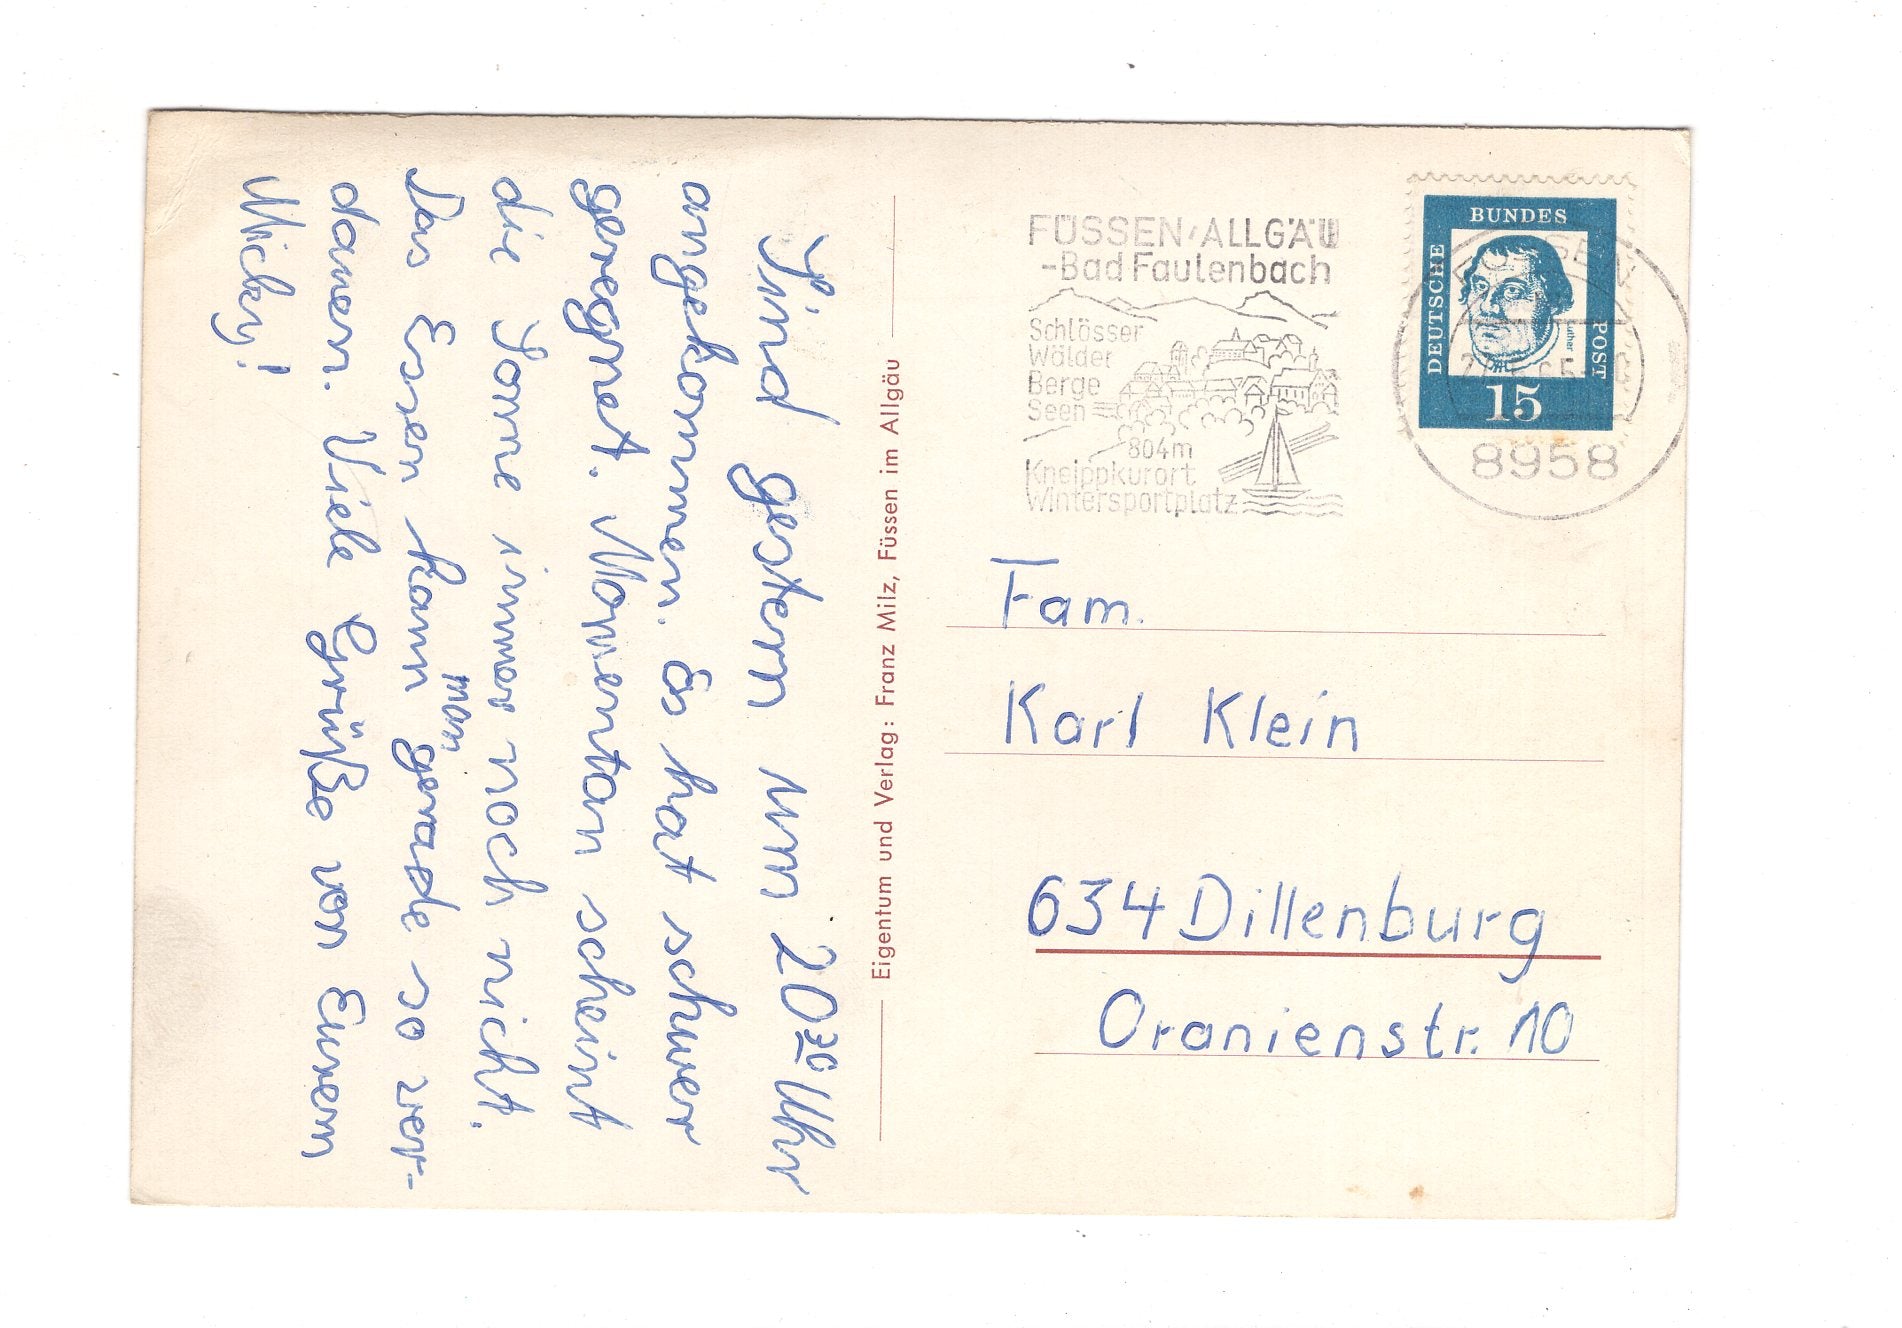 Sind gestern um 20³⁰ Uhr
angekommen. Es hat schwer
geregnet. Momentan scheint
die Sonne immer noch nicht.
Das Essen kann man gerade so ver-
dauen. Viele Grüße von Eurem
Micky!
Eigentum und Verlag: Franz Milz, Füssen im Allgäu
FÜSSEN/ALLGÄU
-Bad Faulenbach
Schlösser
Wälder
Berge
Seen
804m
Kneippkurort
Wintersportplatz
BUNDES
DEUTSCHE
POST
Luther
15
8958
Fam.
Karl Klein
634 Dillenburg
Oranienstr. 10